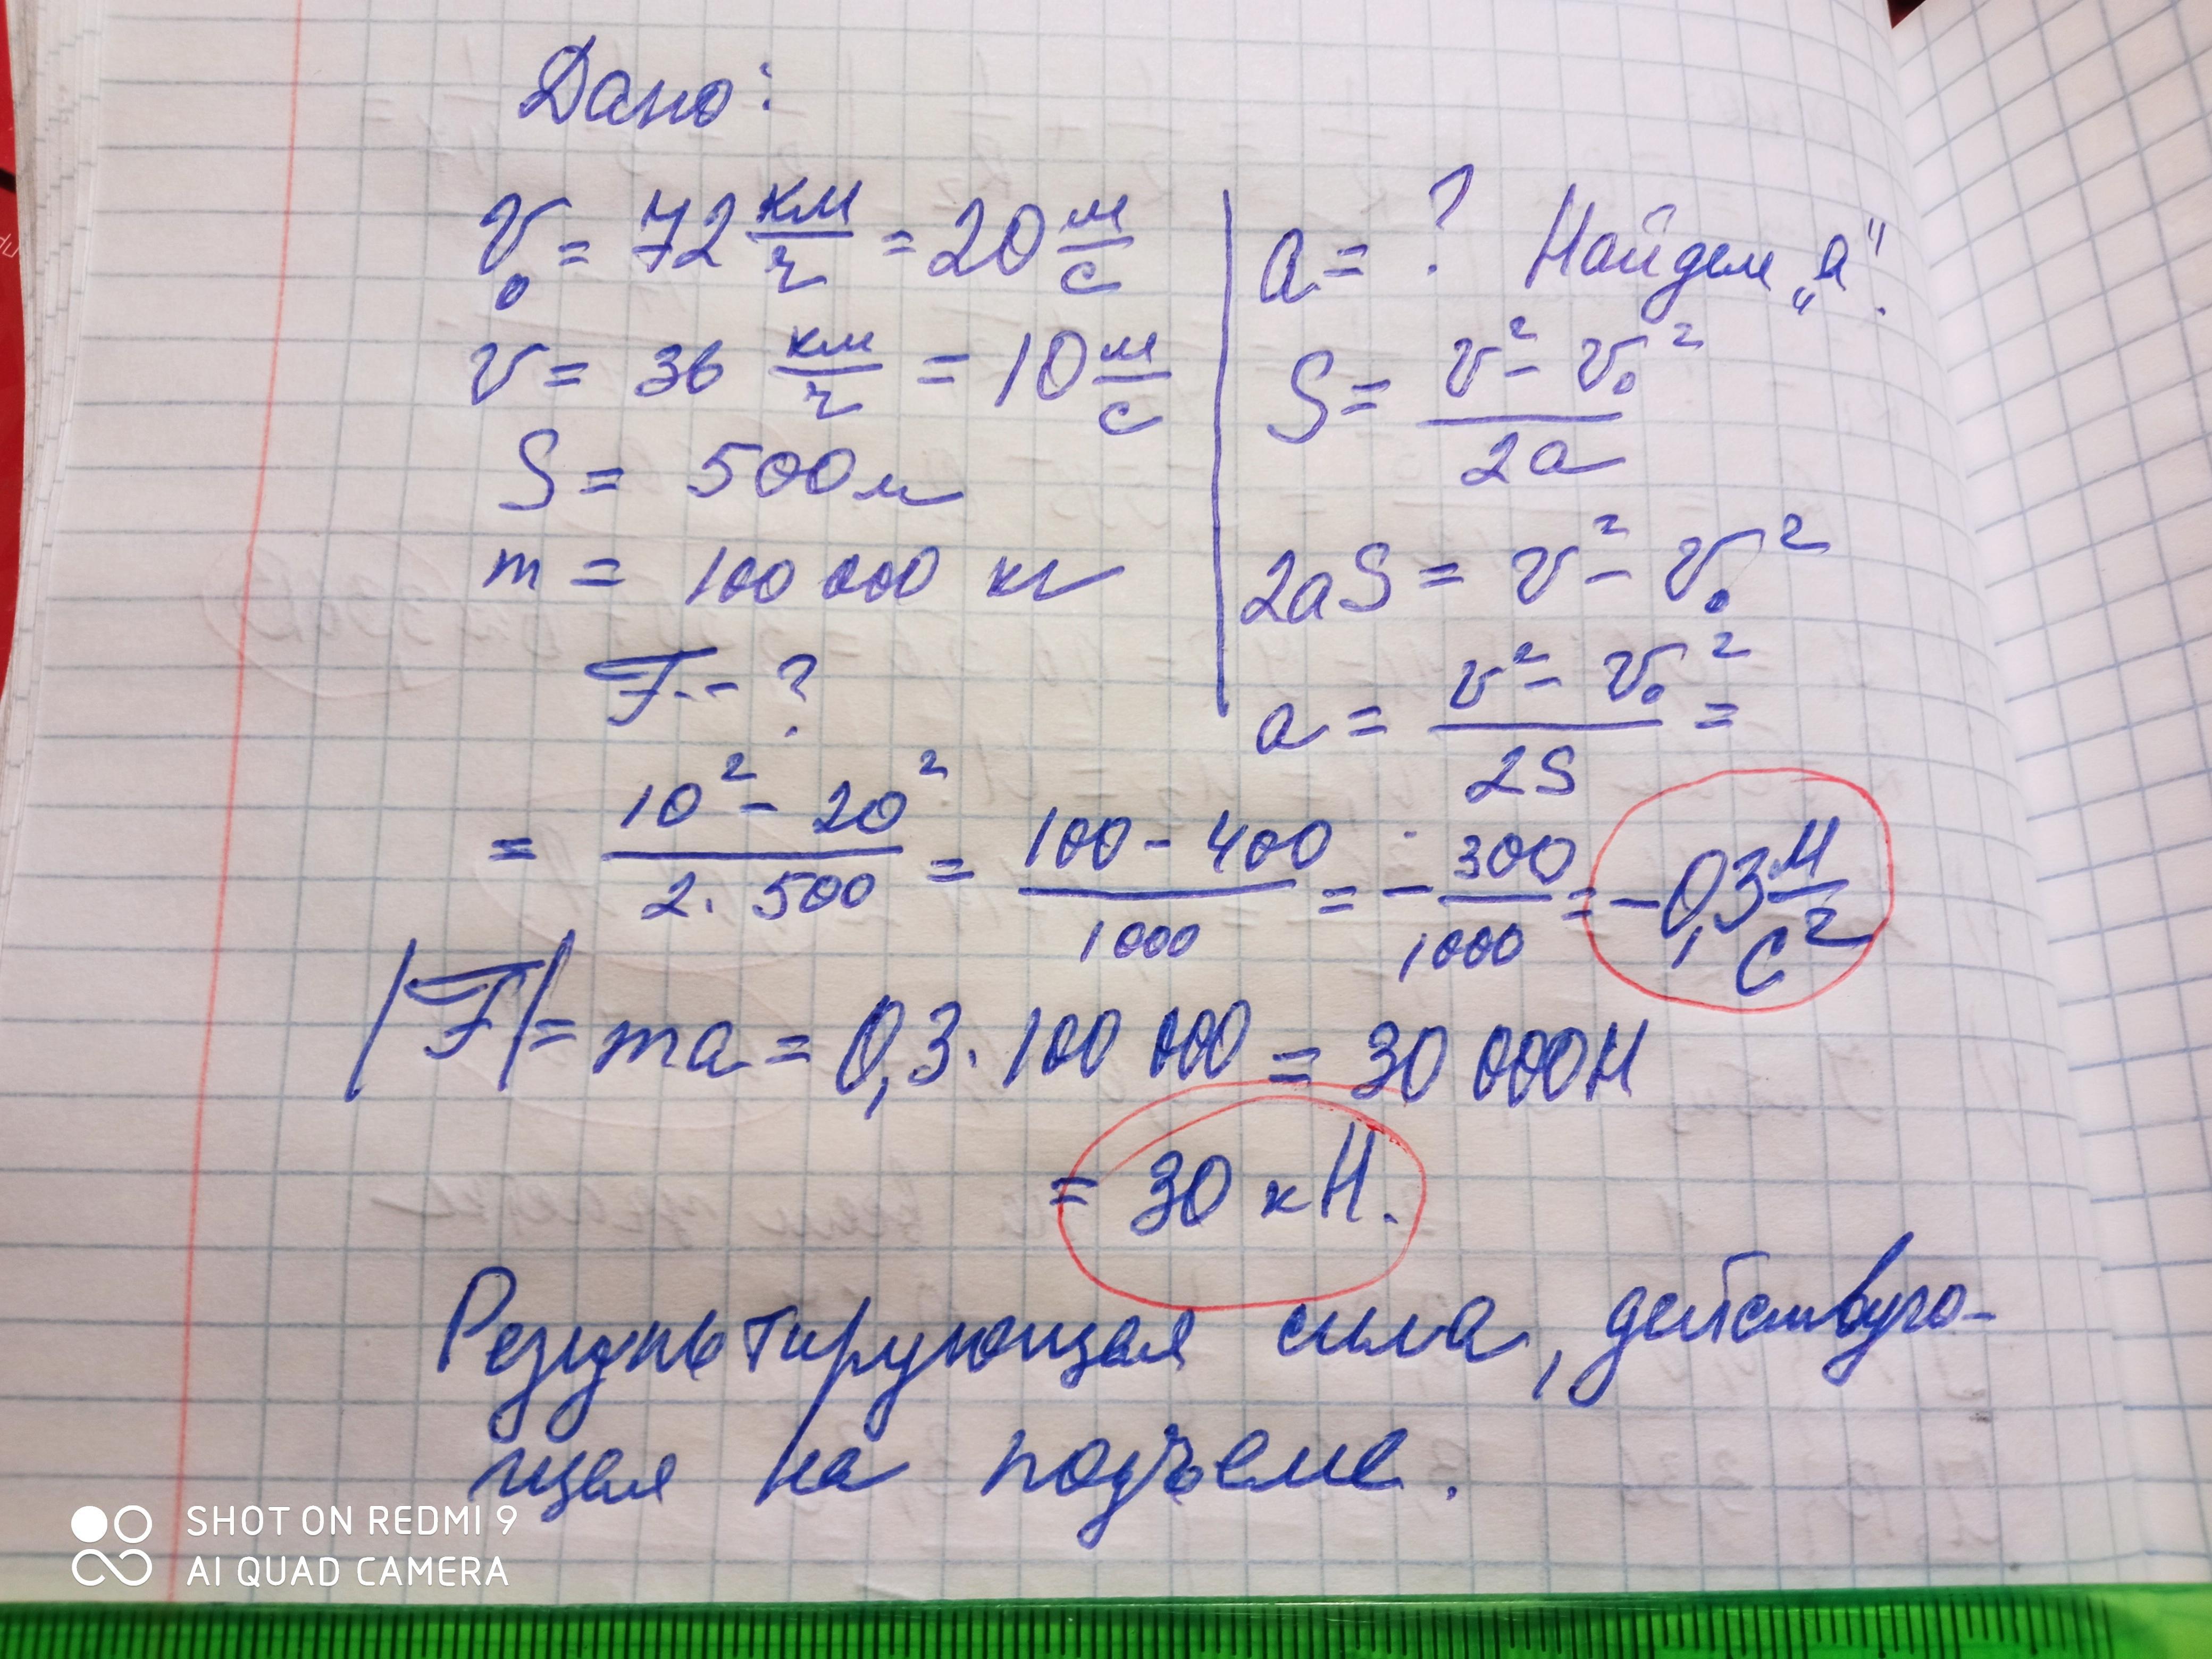 Дано:
v₀ = 72 км/ч = 20 м/с
v = 36 км/ч = 10 м/с
S = 500м
m = 100 000 кг
F -- ?
a = ? Найдем „a".
S = (v² - v₀²)/2a
2aS = v² - v₀²
a = (v² - v₀²)/2S =
= (10² - 20²)/(2 · 500) = (100 - 400)/1000 = - 300/1000 = -0,3 м/с²
|F| = ma = 0,3 · 100 000 = 30 000Н
= 30 кН.
Результирующая сила, действую-
щая на подъеме.
SHOT ON REDMI 9
AI QUAD CAMERA